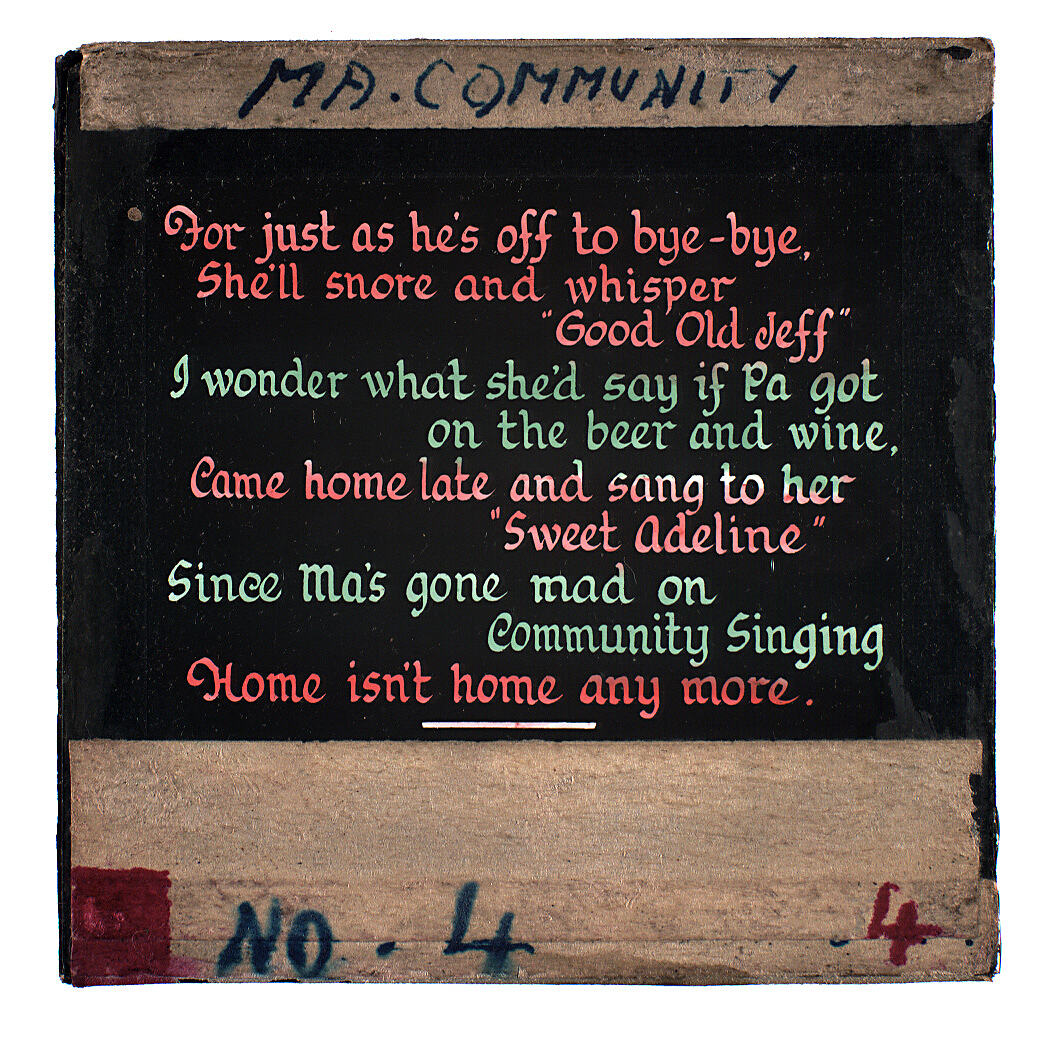 MA. COMMUNITY
For just as he's off to bye-bye,
She'll snore and whisper
"Good Old Jeff"
I wonder what she'd say if Pa got
on the beer and wine,
Came home late and sang to her
"Sweet Adeline"
Since Ma's gone mad on
Community Singing
Home isn't home any more.
NO. - 4
4